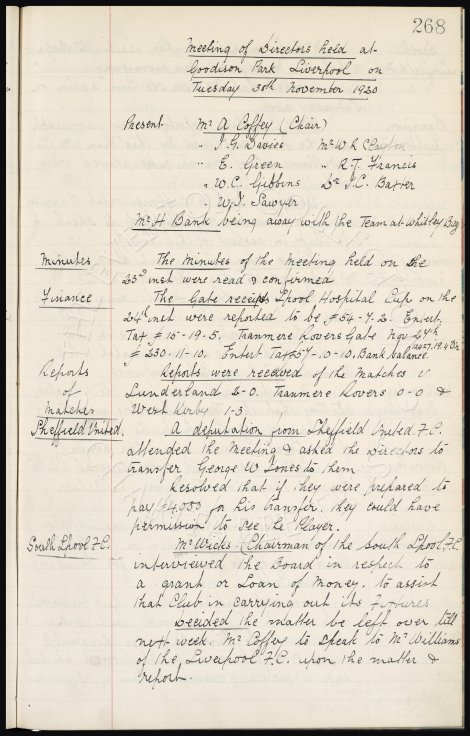 268
Meeting of Directors held at
Goodison Park Liverpool on
Tuesday 30th November 1920
Present Mr A Coffey (Chair)
" J.G. Davies Mr W R Clayton
" E. Green " R.T. Francis
" W.C. Gibbins Dr J.C. Baxter
" W.J. Sawyer
Mr H Bank being away with the Team at Whitley Bay
Minutes The Minutes of the Meeting held on the
23rd inst were read & confirmed
Finance The Gate receipts Lpool Hospital Cup on the
24th inst were reported to be £54-7-2. Entert.
Tax £15-19-5. Tranmere Rovers Gate Nov 27th
£230-11-10. Entert Tax 10-10. Bank balance
Reports Reports were received of the Matches v
of Sunderland 2-0. Tranmere Rovers 0-0 &
Matches West Kirby 1-3
Sheffield United. A deputation from Sheffield United F.C.
attended the Meeting & asked the Directors to
transfer George W Jones to them
Resolved that if they were prepared to
pay £4,000 for his transfer, they could have
permission to see the Player.
South Lpool F.C. Mr Wicks (Chairman of the South Lpool F.C.
interviewed the Board in respect to
a grant or Loan of Money. to assist
that Club in carrying out its Fixtures
Decided the matter be left over till
next week. Mr Coffey to speak to Mr Williams
of the Liverpool F.C. upon the matter &
report.